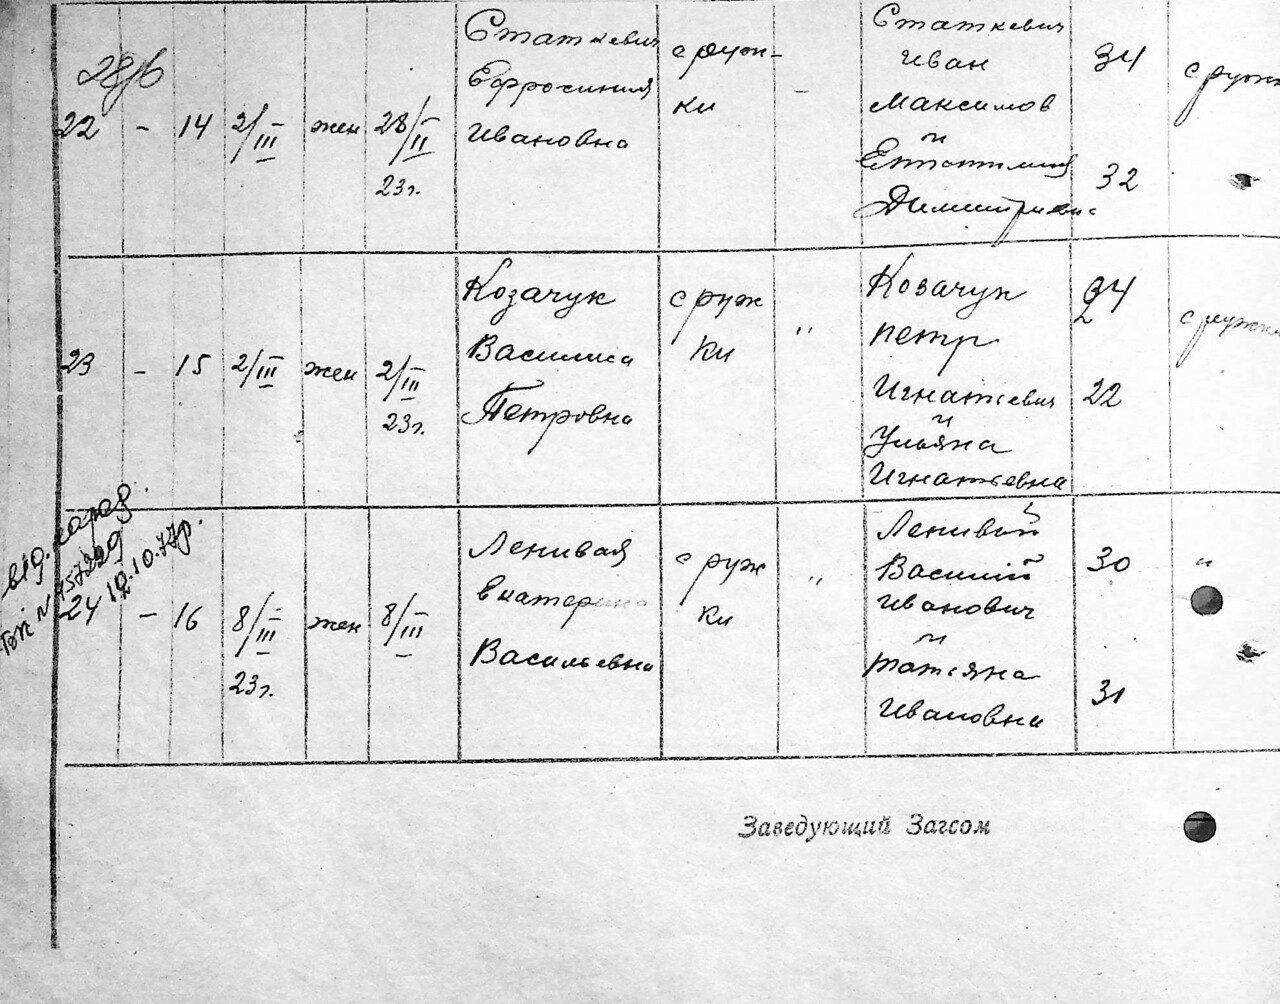 28/б
22 - 14 2/III жен 28/II 23г.
Статкевич
Ефросиния
Ивановна
с руж-
ки
-
Статкевич
Иван
Максимов
и
Димитриевна
34
32
с руж
23 - 15 2/III жен 2/III 23г.
Козачук
Василиса
Петровна
с руж
ки
"
Козачук
Петр
Игнатиевич
и
Ульяна
Игнатьевна
24
22
с ружки
24 - 16 8/III 23г. жен 8/III
Ленивая
Екатерина
Васильевна
с руж
ки
"
Ленивый
Василий
Иванович
и
Татьяна
Ивановна
30
31
"
12.10.77р.
Заведующий Загсом